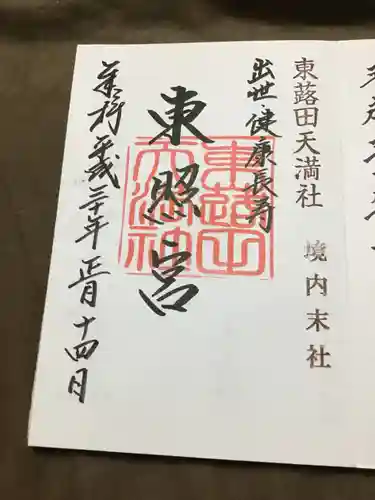 東蕗田天満社 境内末社
出世・健康長寿
東照宮
東蕗田天満社
奉拝 平成三十年 正月 十四日